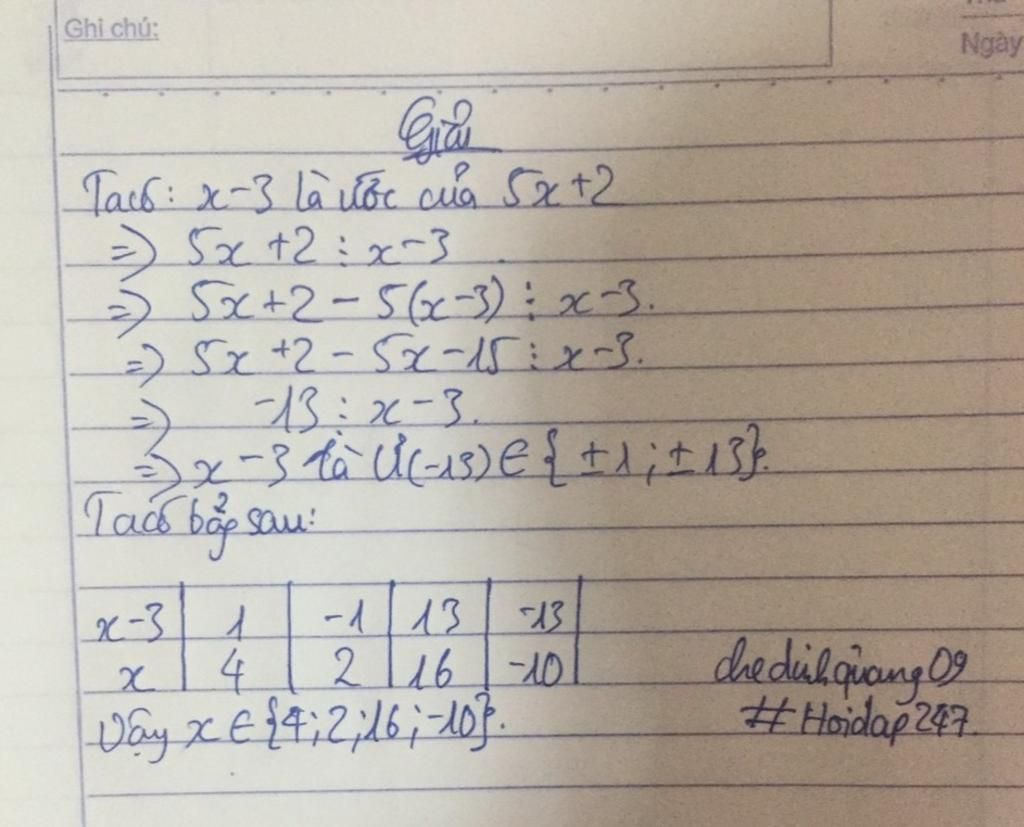 Ghi chú:
Ngày
Giải
Ta có: x-3 là ước của 5x+2
=) 5x+2 ⋮ x-3
=) 5x+2 - 5(x-3) ⋮ x-3.
=) 5x+2 - 5x-15 ⋮ x-3.
=) -13 ⋮ x-3.
=) x-3 là Ư(-13) ∈ {±1; ±13}.
Ta có bảg sau:
x-3 | 1 | -1 | 13 | -13
x | 4 | 2 | 16 | -10
Vậy x ∈ {4; 2; 16; -10}.
chedinhquang09
#Hoidap247.